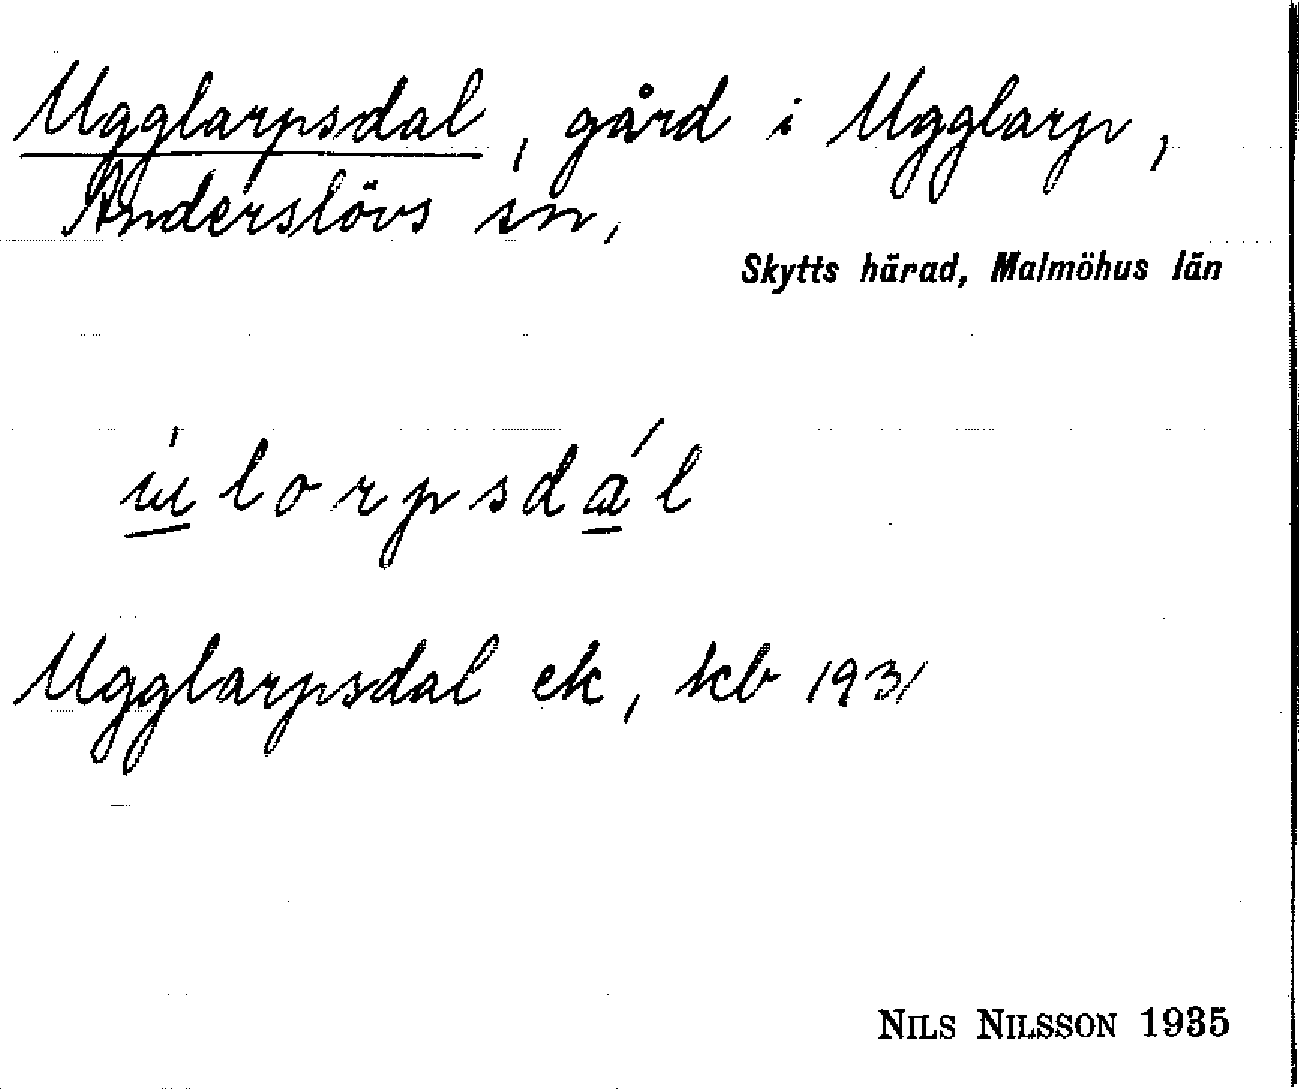 Ugglarpsdal, gård i Ugglarp,
Anderslövs sn,
Skytts härad, Malmöhus län
u̲̍lorpsdá̲l
Ugglarpsdal ek, kb 1931
NILS NILSSON 1935